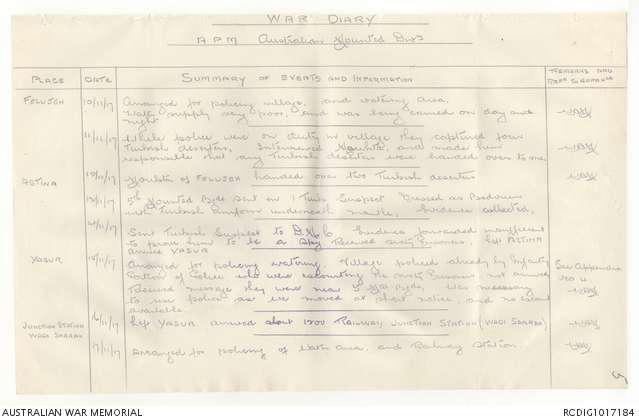 WAR DIARY
A P M Australian Mounted Divn
PLACE DATE SUMMARY OF EVENTS AND INFORMATION REMARKS AND
FELUJEH 10/11/17 Arranged for policing village, and watering area.
Water supply very poor, and was being carried on day and
night
11/11/17 While police were on duty in village they captured four
Turkish deserters, Interviewed and made him
responsible that any Turkish deserters were handed over to me.
12/11/17 of FELUJEH handed over two Turkish deserters
AETINA 13/11/17 5th Mounted Bgde sent in 1 Turk Suspect dressed as Bedouin
with Turkish Uniform underneath mantle, Evidence collected,
14/11/17 Sent Turkish Suspect to Evidence forwarded insufficient
to prove him to be a Spy. Received sixty Prisoners, left AETINA
arrived YASUR
YASUR 15/11/17 Arranged for policing watering. Village policed already by Infantry
Portion of Police who were escorting the sixty Prisoners, not arrived
Received message they were near Bgde, was necessary
to use police as we moved at short notice, and no escort
available
See Appendix
No 4
JUNCTION STATION
WADI SARARR
16/11/17 Left YASUR arrived about 1200 RAILWAY JUNCTION STATION (WADI SARARR)
17/11/17 Arranged for policing of Water area, and Railway Station.
AUSTRALIAN WAR MEMORIAL
RCDIG1017184